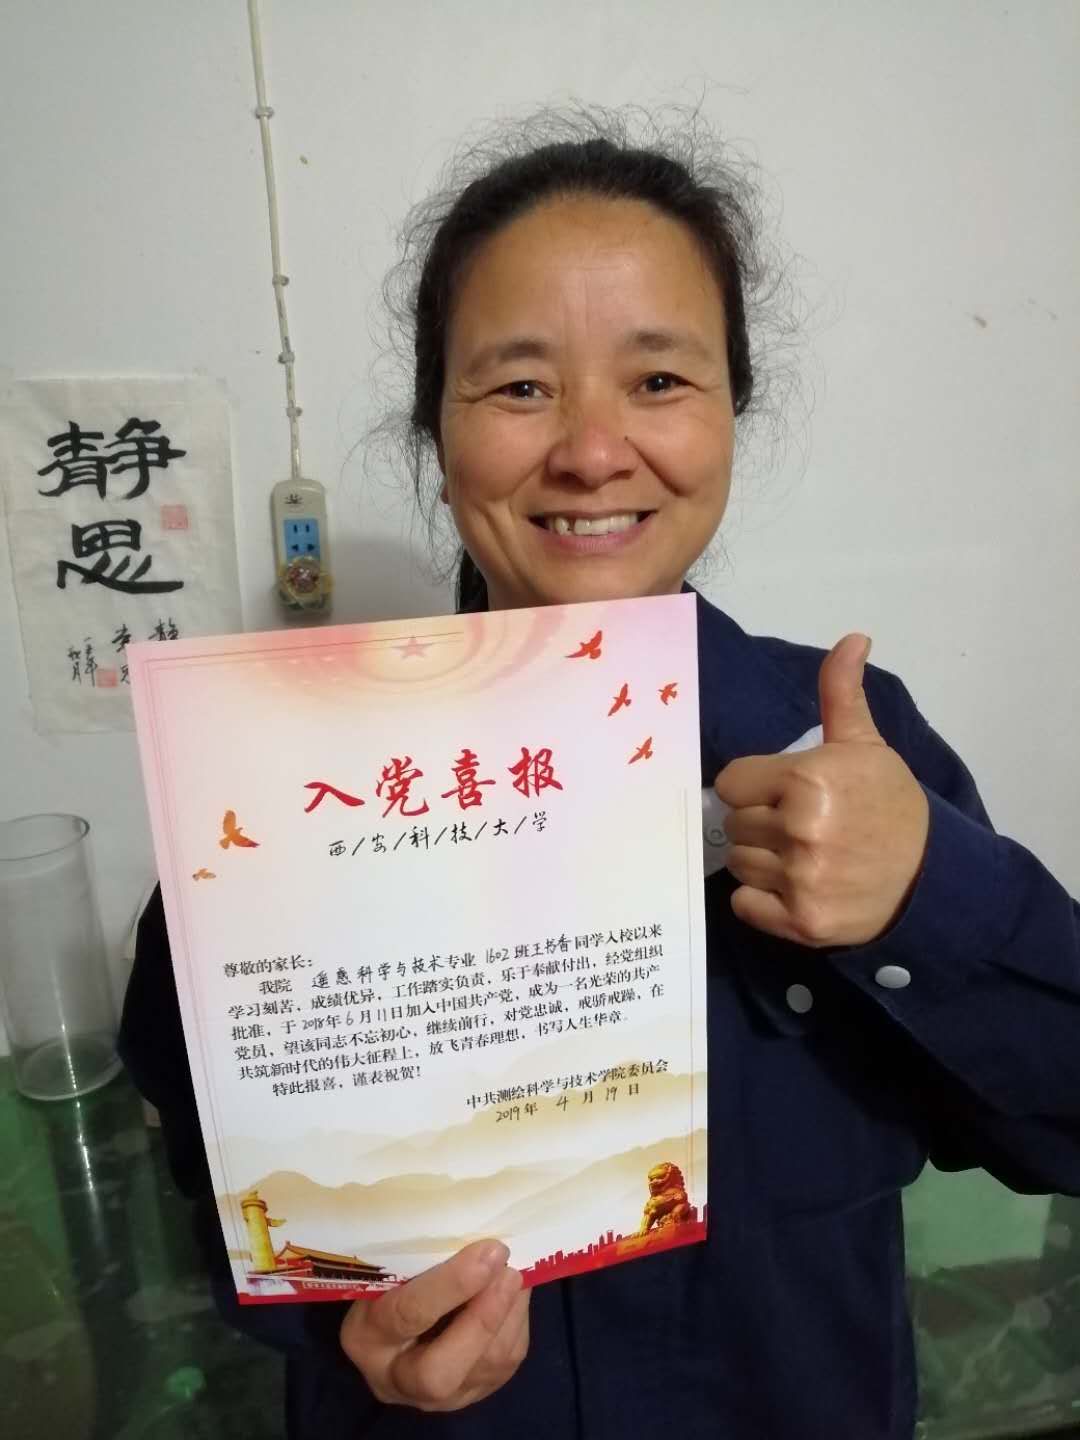 静
思
入党喜报
西/安/科/技/大/学
尊敬的家长：
我院 遥感科学与技术专业 1602班王书香同学入校以来
学习刻苦，成绩优异，工作踏实负责，乐于奉献付出，经党组织
批准，于2018年6月11日加入中国共产党，成为一名光荣的共产
党员，望该同志不忘初心，继续前行，对党忠诚，戒骄戒躁，在
共筑新时代的伟大征程上，放飞青春理想，书写人生华章。
特此报喜，谨表祝贺！
中共测绘科学与技术学院委员会
2019年 4 月 19 日